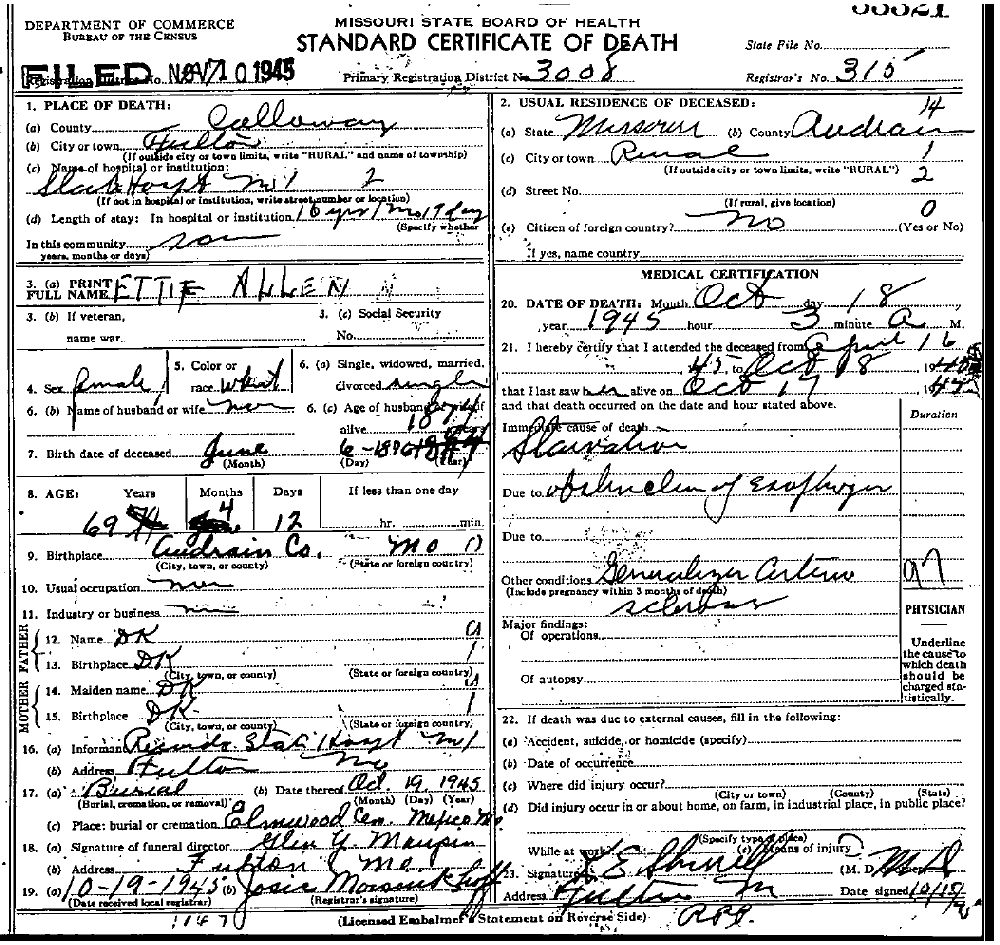 DEPARTMENT OF COMMERCE
BUREAU OF THE CENSUS
MISSOURI STATE BOARD OF HEALTH
STANDARD CERTIFICATE OF DEATH
State File No.
FILED NOV 10 1945
Primary Registration District No. 3008
Registrar's No. 315
1. PLACE OF DEATH:
(a) County Calloway
(b) City or town Fulton
(If outside city or town limits, write "RURAL" and name of township)
(c) Name of hospital or institution:
State Hospt No 1 2
(If not in hospital or institution, write street number or location)
(d) Length of stay: In hospital or institution 16 yrs 1 mo 19 day
(Specify whether
In this community
years, months or days)
3. (a) PRINT FULL NAME ETTIE ALLEN
3. (b) If veteran, name war
3. (c) Social Security No.
4. Sex female
5. Color or race whit
6. (a) Single, widowed, married, divorced single
6. (b) Name of husband or wife
6. (c) Age of husband or wife if alive
7. Birth date of deceased June 6 - 1876
(Month) (Day) (Year)
8. AGE: Years Months Days If less than one day
69 4 12 hr. min.
9. Birthplace Audrain Co. Mo
(City, town, or county) (State or foreign country)
10. Usual occupation
11. Industry or business
FATHER
12. Name DK
13. Birthplace DK
(City, town, or county) (State or foreign country)
MOTHER
14. Maiden name DK
15. Birthplace DK
(City, town, or county) (State or foreign country)
16. (a) Informant Records State Hospt No 1
(b) Address Fulton Mo
17. (a) Burial (b) Date thereof Oct. 19, 1945
(Burial, cremation, or removal) (Month) (Day) (Year)
(c) Place: burial or cremation Elmwood Cem. Mexico Mo
18. (a) Signature of funeral director Glen Y. Maupin
(b) Address Fulton Mo.
19. (a) 10-19-1945 (b) Josie
(Date received local registrar) (Registrar's signature)
2. USUAL RESIDENCE OF DECEASED: 14
(a) State Missouri (b) County Audrain
(c) City or town Rural 1
(If outside city or town limits, write "RURAL") 2
(d) Street No.
(If rural, give location) 0
(e) Citizen of foreign country? No (Yes or No)
If yes, name country
MEDICAL CERTIFICATION
20. DATE OF DEATH: Month Oct day 18
year 1945 hour 3 minute A M.
21. I hereby certify that I attended the deceased from April 16
45 to Oct 18 19
that I last saw h alive on Oct 17 45
and that death occurred on the date and hour stated above.
Duration
Immediate cause of death
Starvation
Due to
Due to
Other conditions Generalized Arterio
(Include pregnancy within 3 months of death)
97
Major findings:
Of operations
Of autopsy
PHYSICIAN
Underline the cause to which death should be charged statistically.
22. If death was due to external causes, fill in the following:
(a) Accident, suicide, or homicide (specify)
(b) Date of occurrence
(c) Where did injury occur?
(City or town) (County) (State)
(d) Did injury occur in or about home, on farm, in industrial place, in public place?
(Specify type of place)
While at work? (e) Means of injury
23. Signature (M. D.
Address Fulton M Date signed
(Licensed Embalmer's Statement on Reverse Side)